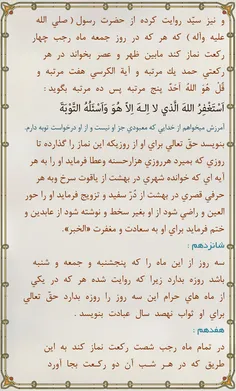 و نيز سيّد روايت كرده از حضرت رسول (صلي الله
عليه وآله ) كه هر كه در روز جمعه ماه رجب چهار
ركعت نماز كند مابين ظهر و عصر بخواند در هر
ركعتي حمد يك مرتبه و آية الكرسي هفت مرتبه و
قُل هُوَ اللهُ اَحَدٌ پنج مرتبه پس ده مرتبه بگويد :
اَسْتَغْفِرُ اللهَ الَّذي لا اِلـهَ اِلاّ هُوَ وَاَسْئَلُهُ التَّوْبَةَ
آمرزش ميخواهم از خدايى كه معبودى جز او نيست و از او درخواست توبه دارم.
بنويسد حقّ تعالي براي او از روزيكه اين نماز را گذارده تا
روزي كه بميرد هرروزي هزارحسنه وعطا فرمايد او را به هر
آيه اي كه خوانده شهري در بهشت از ياقوت سرخ وبه هر
حرفي قصري در بهشت از دُرّ سفيد و تزويج فرمايد او را حور
العين و راضي شود از او بغير سخط و نوشته شود از عابدين و
ختم فرمايد براي او به سعادت و مغفرت «الخبر».
شانزدهم :
سه روز از اين ماه را كه پنجشنبه و جمعه و شنبه
باشد روزه بدارد زيرا كه روايت شده هر كه در يكي
از ماه هاي حرام اين سه روز را روزه بدارد حقّ تعالي
براي او ثواب نهصد سال عبادت بنويسد .
هفدهم :
در تمام ماه رجب شصت ركعت نماز كند به اين
طريق كه در هـر شـب آن دو ركـعت بجا آورد